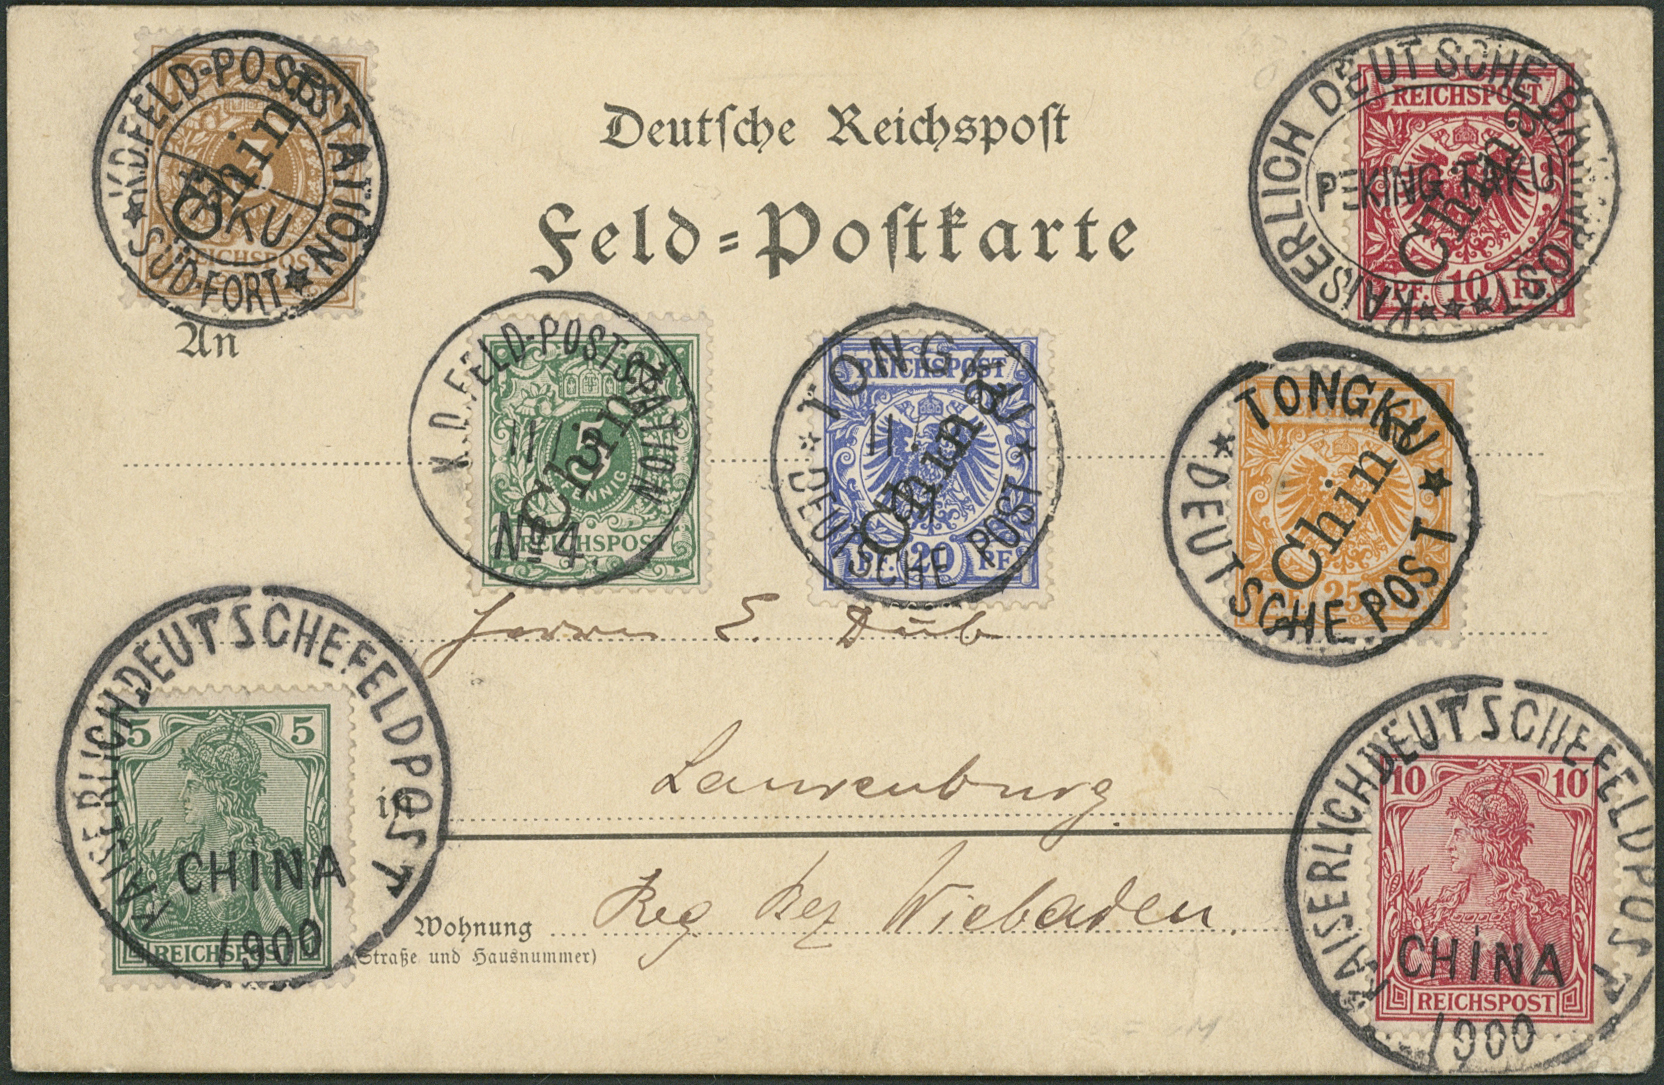 K.D.FELD-POSTSTATION
TAKU
SÜD-FORT
China
REICHSPOST
Deutsche Reichspost
Feld=Postkarte
KAISERLICH DEUTSCHE BAHNPOST
PEKING TAKU
REICHSPOST
China
PF. 10 PF.
An
K.D.FELD-POSTSTATION
11
China
5
PFENNIG
No 4.
REICHSPOST
TONGKU
REICHSPOST
11
China
PF. 20 PF.
DEUTSCHE POST
TONGKU
China
25
DEUTSCHE POST
Herrn E. Düb
KAISERLICHDEUTSCHEFELDPOST
5 5
CHINA
REICHSPOST
1900
in
Laurenburg
Wohnung
(Straße und Hausnummer)
Reg Bez Wiebaden.
KAISERLICHDEUTSCHEFELDPOST
10 10
CHINA
REICHSPOST
1900